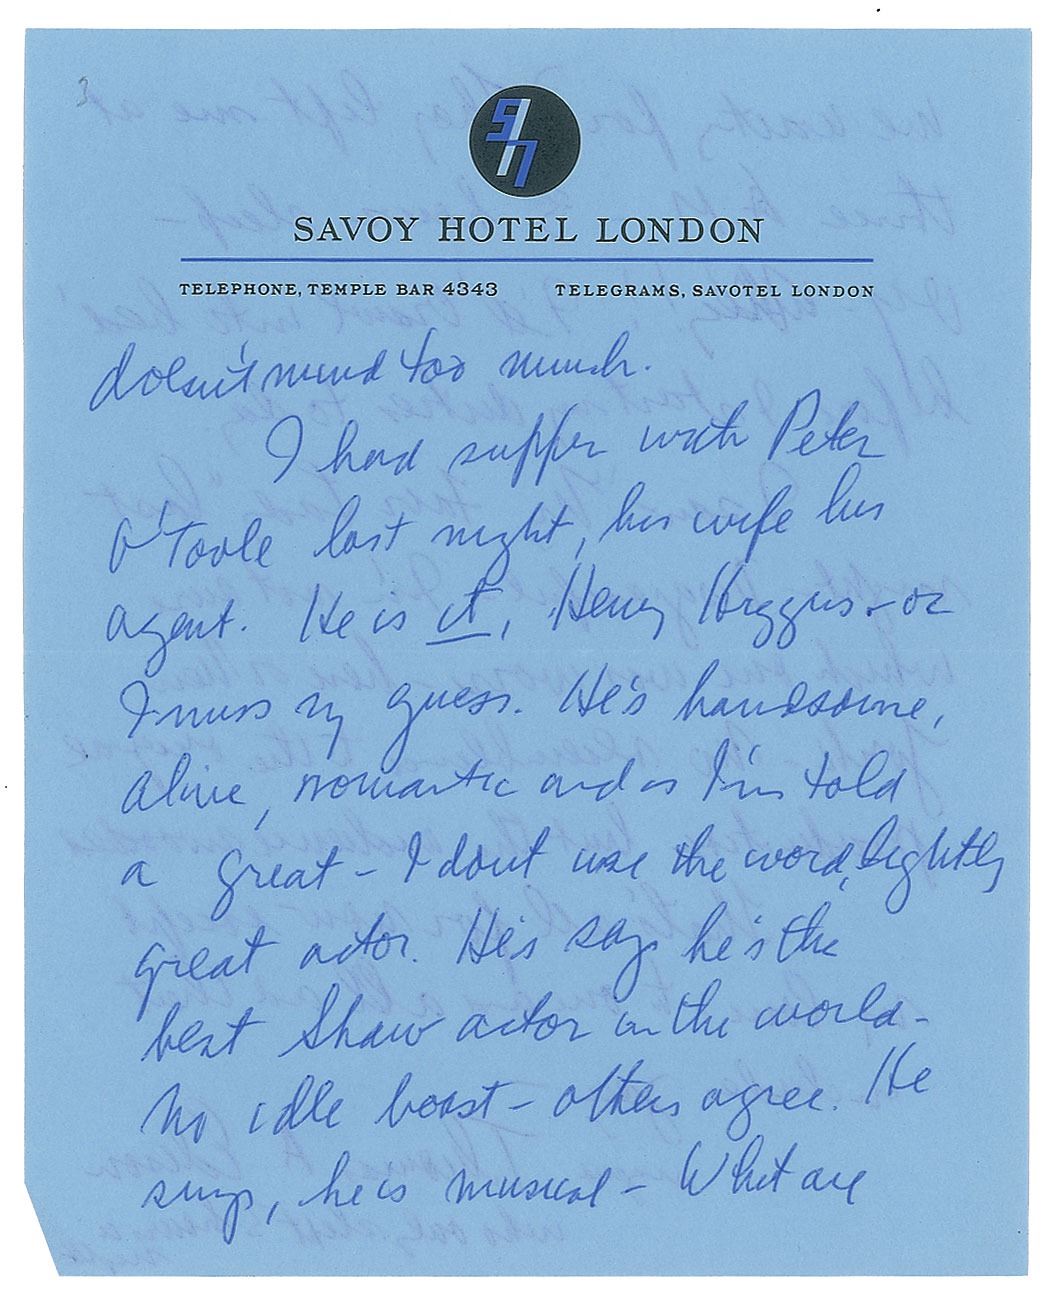 3
SAVOY HOTEL LONDON
TELEPHONE, TEMPLE BAR 4343 TELEGRAMS, SAVOTEL LONDON
doesn't mind too much.
I had supper with Peter
O'Toole last night, his wife his
agent. He is it, Henry Higgins - or
I miss my guess. He's handsome,
alive, romantic and as I'm told
a great - I dont use the word lightly
great actor. He's says he's the
best Shaw actor in the world -
No idle boast - others agree. He
sings, he is musical - What are